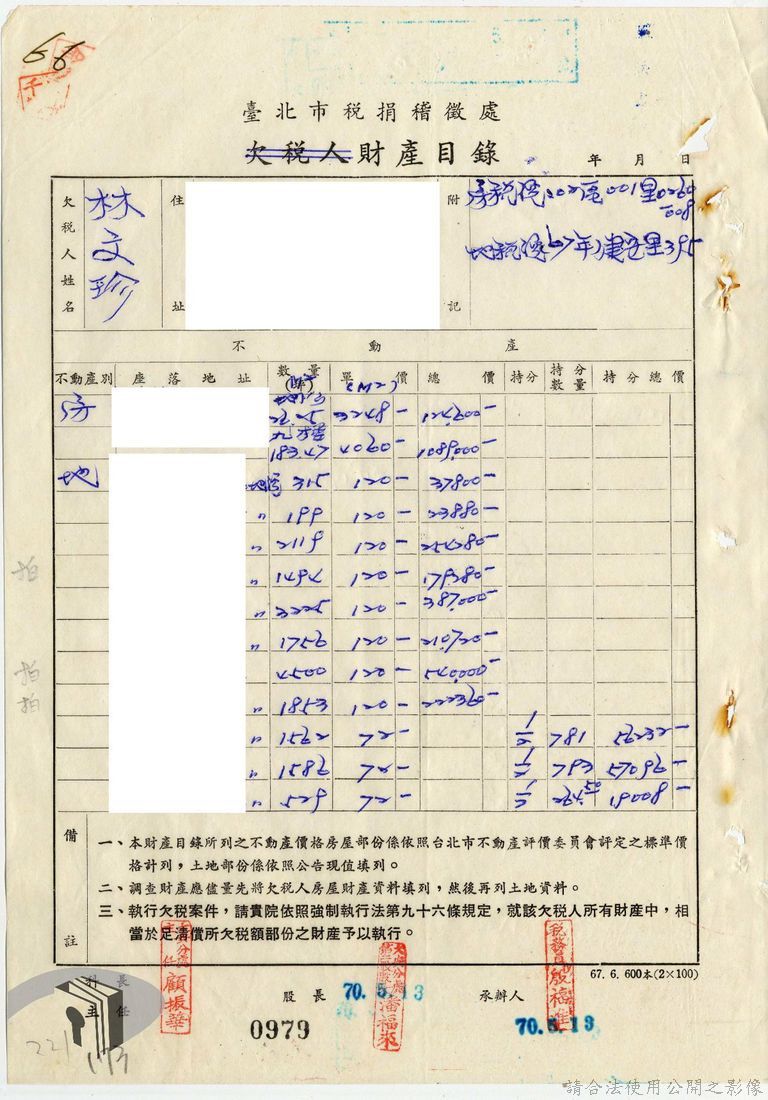 66
臺北市稅捐稽徵處
欠稅人財產目錄
年 月 日
欠稅人姓名 林文珍 住址 附記
房稅 202區001里0260
008
地稅 67年 里395
不動產
不動產別 座落地址 數量 單價 總價 持分 持分數量 持分總價
(M2)
房 地下
3248- 124,600-
九樓
183.47 4060- 1089,000-
地 315 120- 37800-
〃 199 120- 23880-
〃 2119 120- 254280-
〃 1494 120- 179280-
〃 3225 120- 387,000-
〃 1756 120- 210,720-
4500 120- 540,000-
〃 1853 120- 222360-
〃 1562 72- 1/2 781 56232-
〃 1586 72- 1/2 793 57096-
〃 529 72- 1/2 264.50 19008-
拍
拍
拍
備註
一、本財產目錄所列之不動產價格房屋部份係依照台北市不動產評價委員會評定之標準價
格計列，土地部份係依照公告現值填列。
二、調查財產應儘量先將欠稅人房屋財產資料填列，然後再列土地資料。
三、執行欠稅案件，請貴院依照強制執行法第九十六條規定，就該欠稅人所有財產中，相
當於足清償所欠稅額部份之財產予以執行。
67.6.600本(2×100)
科長
主任 顧振華 股長 70.5.13 潘福來 承辦人 稅務員殷福進
0979 70.5.13
221
113
請合法使用公開之影像